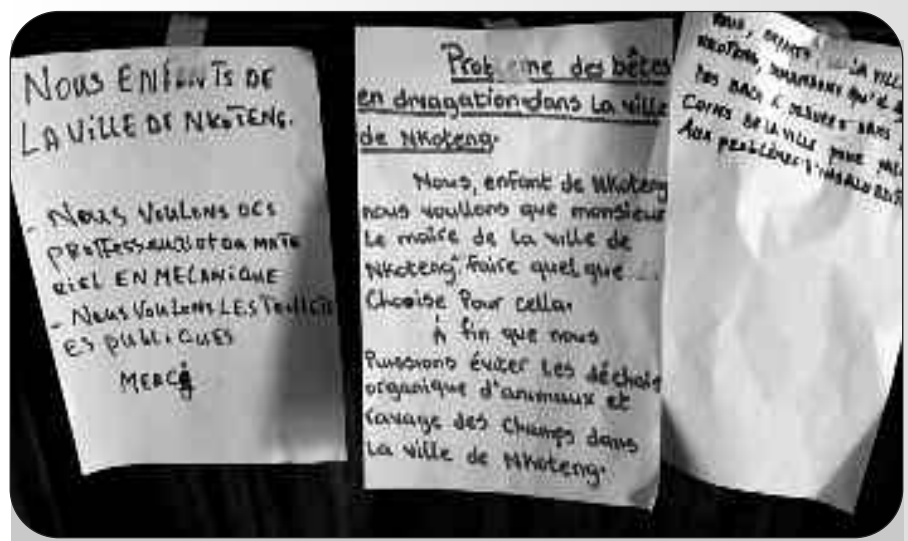 NOUS ENFANTS DE
LA VILLE DE NKOTENG.
- NOUS VOULONS DES
PROFFESSEURS ET DA MATE
RIEL EN MECANIQUE
- NOUS VOULONS LES TOILETT
ES PUBLIQUES
MERCI
Probleme des bêtes
en divagation dans La ville
de NKoteng.
Nous, enfant de NKoteng
nous voullons que monsieur
Le maire de La ville de
NKoteng faire quel que
Chooise Pour cella.
À fin que nous
Puissions éviter Les déchais
organique d'animaux et
ravage des Champs dans
La ville de NKoteng.
LA VILLE
NKOTENG, DEMANDONS QU'IL
DES BACS À ORDURES DANS
COINS DE LA VILLE POUR
AUX PROBLÈMES D'INSALUBRITÉ